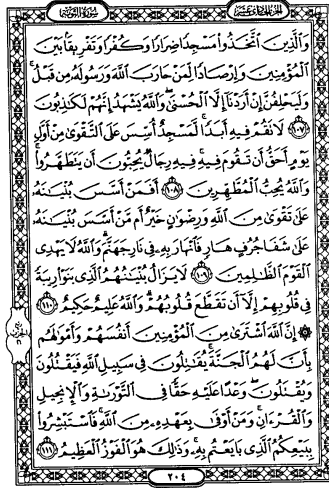 الجزء الحادي عشر سورة التوبة
وَالَّذِينَ اتَّخَذُوا مَسْجِدًا ضِرَارًا وَكُفْرًا وَتَفْرِيقًا بَيْنَ
الْمُؤْمِنِينَ وَإِرْصَادًا لِمَنْ حَارَبَ اللَّهَ وَرَسُولَهُ مِن قَبْلُ
وَلَيَحْلِفُنَّ إِنْ أَرَدْنَا إِلَّا الْحُسْنَىٰ وَاللَّهُ يَشْهَدُ إِنَّهُمْ لَكَاذِبُونَ
١٠٧ لَا تَقُمْ فِيهِ أَبَدًا لَّمَسْجِدٌ أُسِّسَ عَلَى التَّقْوَىٰ مِنْ أَوَّلِ
يَوْمٍ أَحَقُّ أَن تَقُومَ فِيهِ فِيهِ رِجَالٌ يُحِبُّونَ أَن يَتَطَهَّرُوا
وَاللَّهُ يُحِبُّ الْمُطَّهِّرِينَ ١٠٨ أَفَمَنْ أَسَّسَ بُنْيَانَهُ
عَلَىٰ تَقْوَىٰ مِنَ اللَّهِ وَرِضْوَانٍ خَيْرٌ أَم مَّنْ أَسَّسَ بُنْيَانَهُ
عَلَىٰ شَفَا جُرُفٍ هَارٍ فَانْهَارَ بِهِ فِي نَارِ جَهَنَّمَ وَاللَّهُ لَا يَهْدِي
الْقَوْمَ الظَّالِمِينَ ١٠٩ لَا يَزَالُ بُنْيَانُهُمُ الَّذِي بَنَوْا رِيبَةً
فِي قُلُوبِهِمْ إِلَّا أَن تَقَطَّعَ قُلُوبُهُمْ وَاللَّهُ عَلِيمٌ حَكِيمٌ ١١٠
۞ إِنَّ اللَّهَ اشْتَرَىٰ مِنَ الْمُؤْمِنِينَ أَنفُسَهُمْ وَأَمْوَالَهُم
بِأَنَّ لَهُمُ الْجَنَّةَ يُقَاتِلُونَ فِي سَبِيلِ اللَّهِ فَيَقْتُلُونَ
وَيُقْتَلُونَ وَعْدًا عَلَيْهِ حَقًّا فِي التَّوْرَاةِ وَالْإِنجِيلِ
وَالْقُرْءَانِ وَمَنْ أَوْفَىٰ بِعَهْدِهِ مِنَ اللَّهِ فَاسْتَبْشِرُوا
بِبَيْعِكُمُ الَّذِي بَايَعْتُم بِهِ وَذَٰلِكَ هُوَ الْفَوْزُ الْعَظِيمُ ١١١
٢٠٤